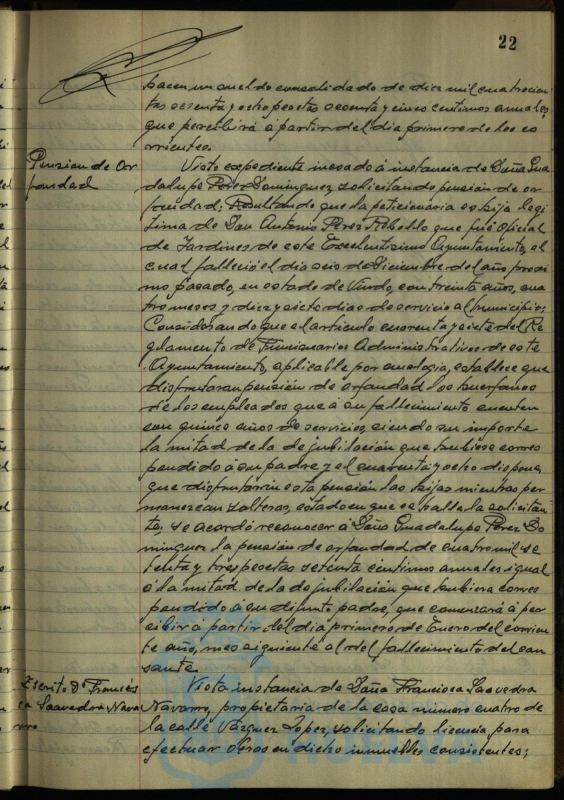 22
hacen un sueldo consolidado de diez mil cuatrocien
tas sesenta y ocho pesetas sesenta y cinco centimos anuales,
que percibirá á partir del dia primero de los co
rrientes.
Pension de Or
fandad
Visto expediente incoado á instancia de Doña Gua
dalupe Perez Dominguez solicitando pensión de or
fandad; Resultando que la peticionaria es hija legi
tima de Don Antonio Pérez Rebollo que fué Oficial
de Jardines de este Excelentisimo Ayuntamiento, el
cual falleció el dia seis de Diciembre del año proxi
mo pasado, en estado de Viudo, con treinta años, cua
tro meses y diez y siete dias de servicio al Municipio;
Considerando que el articulo cuarenta y siete del Re
glamento de Funcionarios Administrativos de este
Ayuntamiento, aplicable por analogia, establece que
disfrutaran pensión de orfandad los huerfanos
de los empleados que á su fallecimiento cuenten
con quince años de servicios, siendo su importe
la mitad de la de jubilación que hubiese corres
pondido á su padre y el cuarenta y ocho dispone
que disfrutarán esta pensión las hijas mientras per
manezcan solteras, estado en que se halla la solicitan
te, se acordó reconocer á Doña Guadalupe Pérez Do
minguez la pensión de orfandad de cuatro mil se
tenta y tres pesetas setenta centimos anuales igual
á la mitad de la de jubilación que hubiera corres
pondido á su difunto padre, que comenzará á per
cibir á partir del dia primero de Enero del corrien
te año, mes siguiente al del fallecimiento del cau
sante.
Escrito Dª Francis
ca Saavedra Nava
rro
Vista instancia de Doña Francisca Saavedra
Navarro, propietaria de la casa número cuatro de
la calle Vázquez Lopez, solicitando licencia para
efectuar obras en dicho inmueble consistentes;